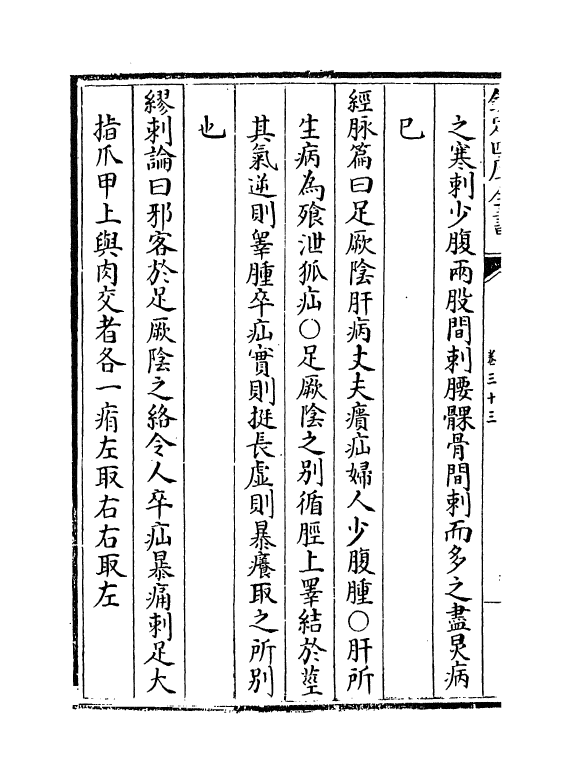 欽定四庫全書
卷三十三
之寒刺少腹兩股間刺腰髁骨間刺而多之盡炅病
已
經脉篇曰足厥陰肝病丈夫㿉疝婦人少腹腫○肝所
生病為飱泄狐疝○足厥陰之别循脛上睪結於莖
其氣逆則睾腫卒疝實則挺長虚則暴癢取之所别
也
繆刺論曰邪客於足厥陰之絡令人卒疝暴痛刺足大
指爪甲上與肉交者各一痏左取右右取左